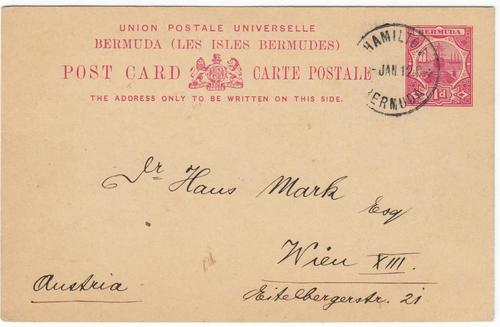 UNION POSTALE UNIVERSELLE
BERMUDA (LES ISLES BERMUDES)
POST CARD CARTE POSTALE
THE ADDRESS ONLY TO BE WRITTEN ON THIS SIDE.
HAMILTON
JAN 12
BERMUDA
BERMUDA
1d
Dr Hans Mark Esq
Wien XIII.
Eitelbergerstr. 21
Austria